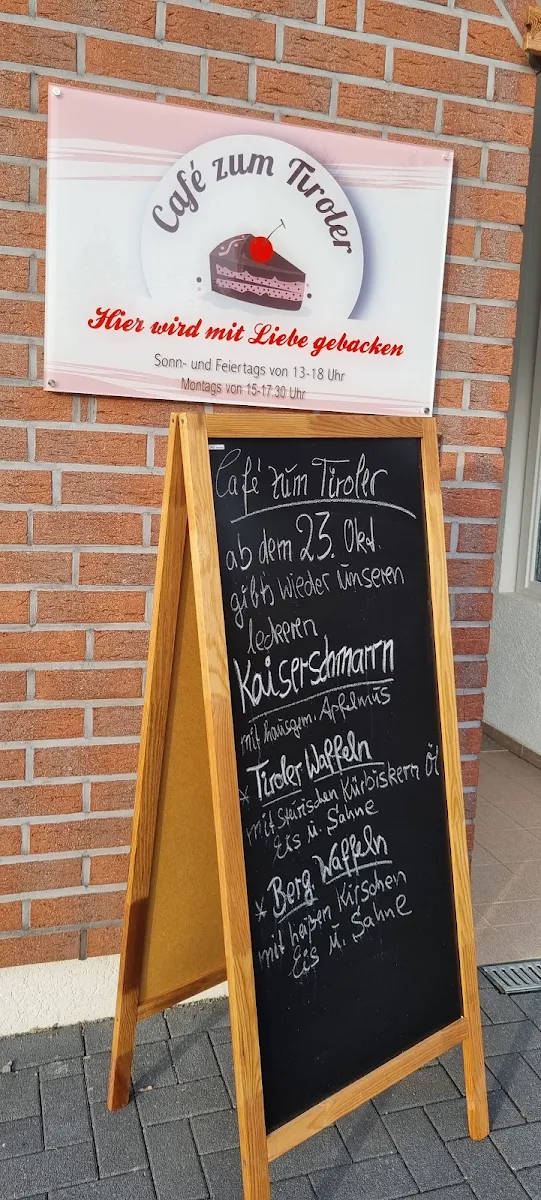 Café zum Tiroler
Hier wird mit Liebe gebacken
Sonn- und Feiertags von 13-18 Uhr
Montags von 15-17.30 Uhr
Café zum Tiroler
ab dem 23. Okt.
gibts wieder unseren
leckeren
Kaiserschmarrn
mit hausgem. Apfelmus
* Tiroler Waffeln
mit Steirischen Kürbiskern Öl
Eis u. Sahne
* Berg Waffeln
mit heißen Kirschen
Eis u. Sahne